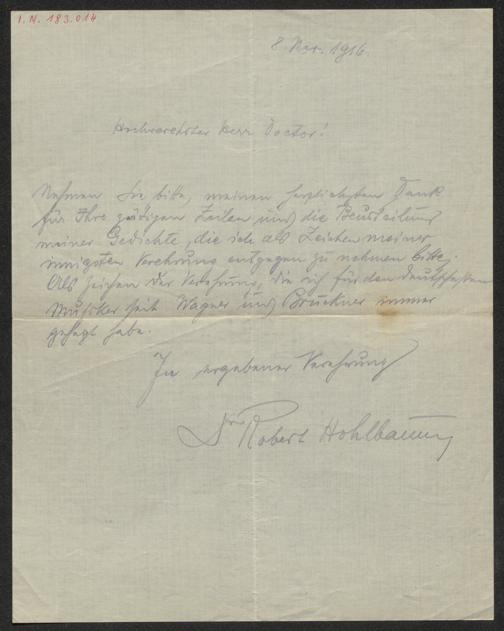 I.N. 183.014
8. Nov. 1916.
Hochverehrter Herr Doctor!
Nehmen Sie bitte, meinen herzlichsten Dank
für Ihre gütigen Zeilen und die Beurteilung
meiner Gedichte, die ich als Zeichen meiner
innigsten Verehrung entgegen zu nehmen bitte,
Als Zeichen der Verehrung, die ich für den deutschesten
Musiker seit Wagner und Bruckner immer
gehegt habe.
In ergebener Verehrung
Dr Robert Hohlbaum